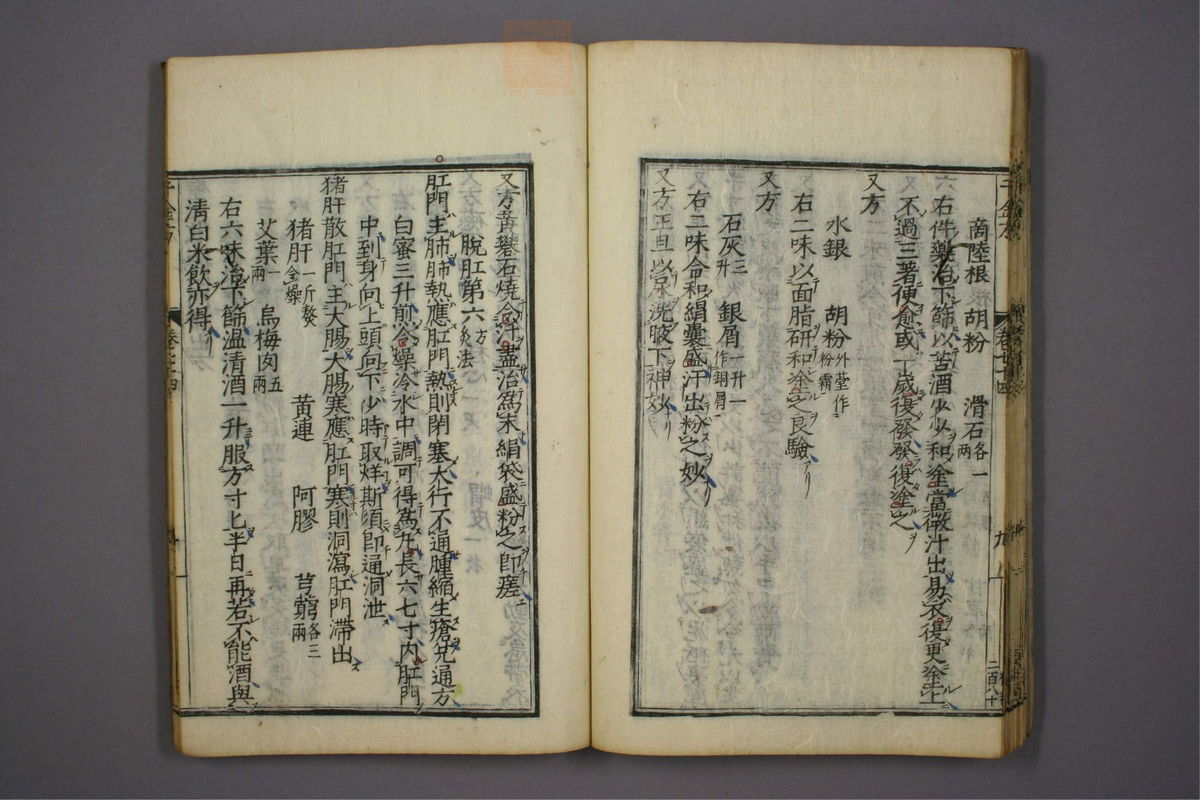 商陸根 胡粉 滑石各一兩
右件藥治下篩以苦酒少少和塗當微汗出易衣復更塗之
不過三著便愈或一歲復發發復塗之
又方
水銀 胡粉外臺作粉霜
右二味以面脂研和塗之良驗
又方
石灰三升 銀屑一升一作銅屑
右二味合和絹囊盛汗出粉之妙
又方正旦以尿洗腋下神妙
又方黃礬石燒令汁盡治爲末絹袋盛粉之即瘥
脫肛第六方 灸法
肛門主肺肺熱應肛門熱則閉塞大行不通腫縮生瘡兌通方
白蜜三升煎令燥冷水中調可得爲丸長六七寸內肛門
中到身向上頭向下少時取烊斯須即通洞泄
猪肝散肛門主大腸大腸寒應肛門寒則洞瀉肛門滯出
猪肝一斤熬令燥 黃連 阿膠 芎藭各三兩
艾葉一兩 烏梅肉五兩
右六味治下篩溫清酒一升服方寸匕半日再若不能酒與
清白米飲亦得
千金方 卷二十四 九 二百八十